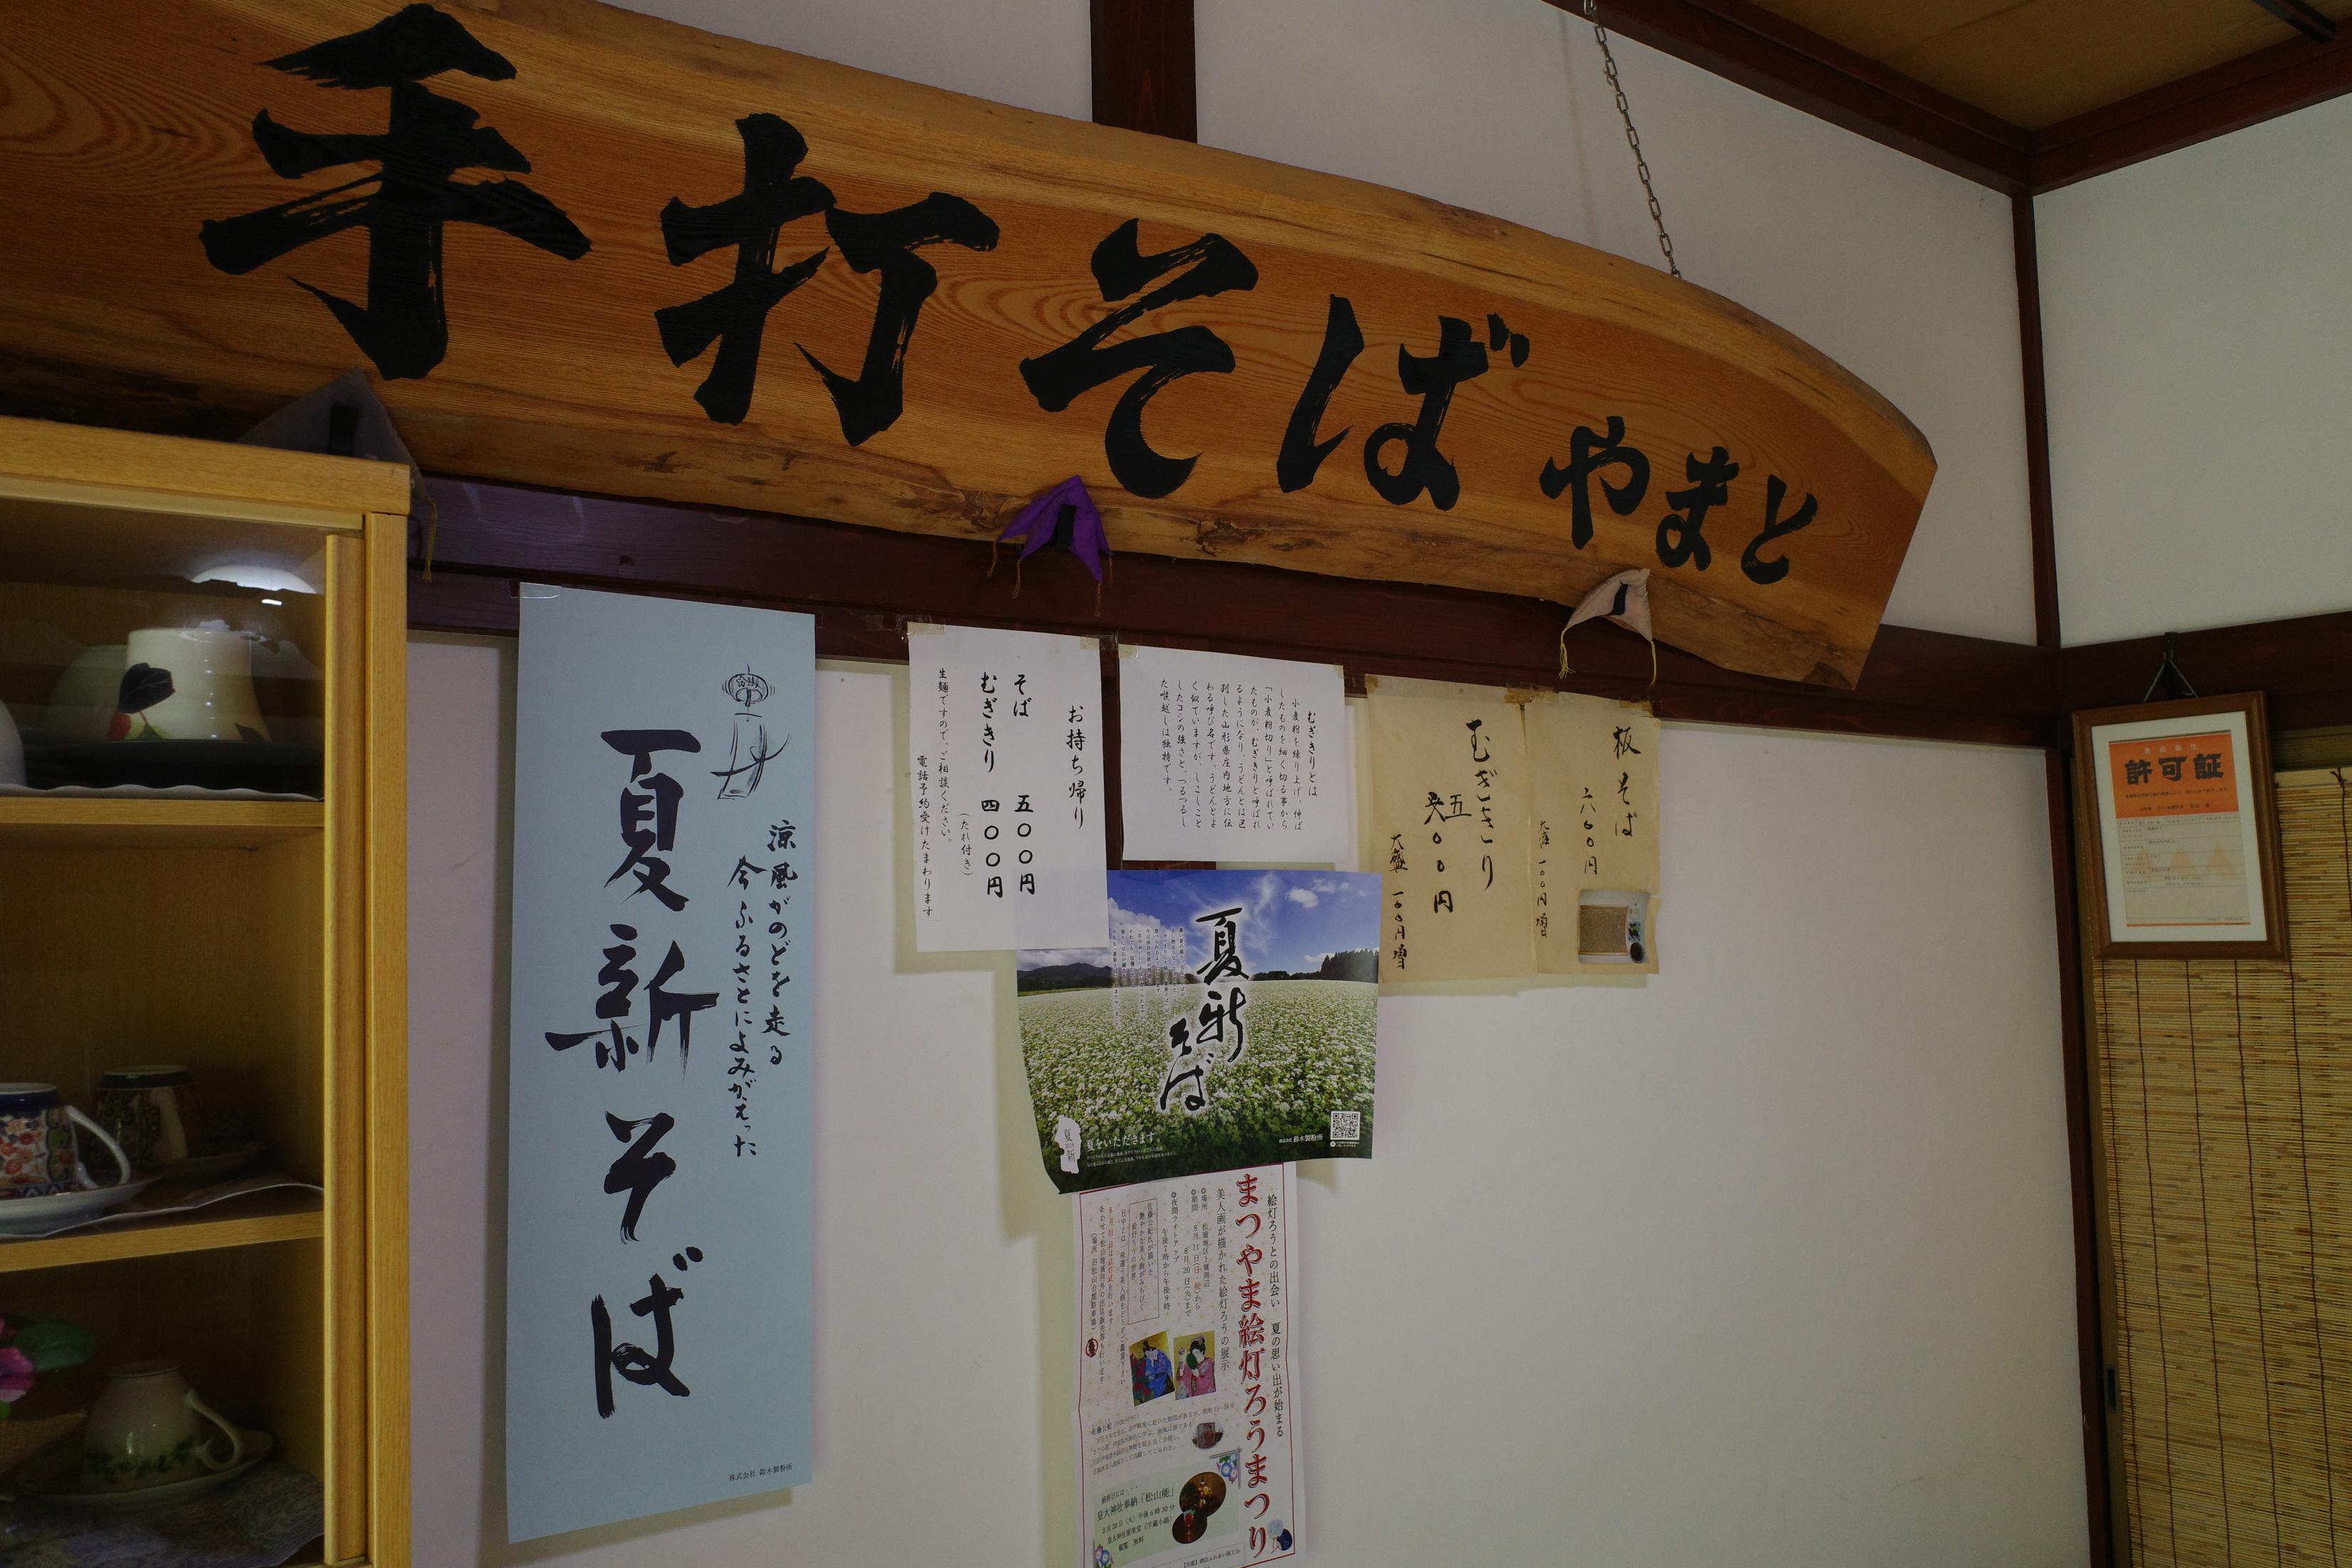 手打そば やまと
夏新そば
涼風がのどを走る
今ふるさとによみがえった
株式会社 鈴木製粉所
お持ち帰り
そば 五〇〇円
むぎきり 四〇〇円
(たれ付き)
生麺ですので、ご相談ください。
電話予約受けたまわります
むぎきりとは
小麦粉を練り上げ、伸ば
したものを細く切る事から
「小麦粉切り」と呼ばれてい
たものが、むぎきりと呼ばれ
るようになり、うどんとは区
別した山形県庄内地方に伝
わる呼び名です。うどんとよ
く似ていますが、しこしこと
したコシの強さと、つるつるし
た喉越しは独特です。
板そば
六〇〇円
大盛 一〇〇円増
むぎきり
五〇〇円
大盛 一〇〇円増
許可証
夏新そば
夏をいただきます。
株式会社 鈴木製粉所
絵灯ろうとの出会い 夏の思い出が始まる
まつやま絵灯ろうまつり
美人画が描かれた絵灯ろうの展示
場所 松嶺地区上葉周辺
期間 8月11日(日・祝)から
8月20日(火)まで
夜間ライトアップ
午後7時から午後9時
皇大神社奉納「松山能」
8月20日(火)午後6時30分
観覧 無料